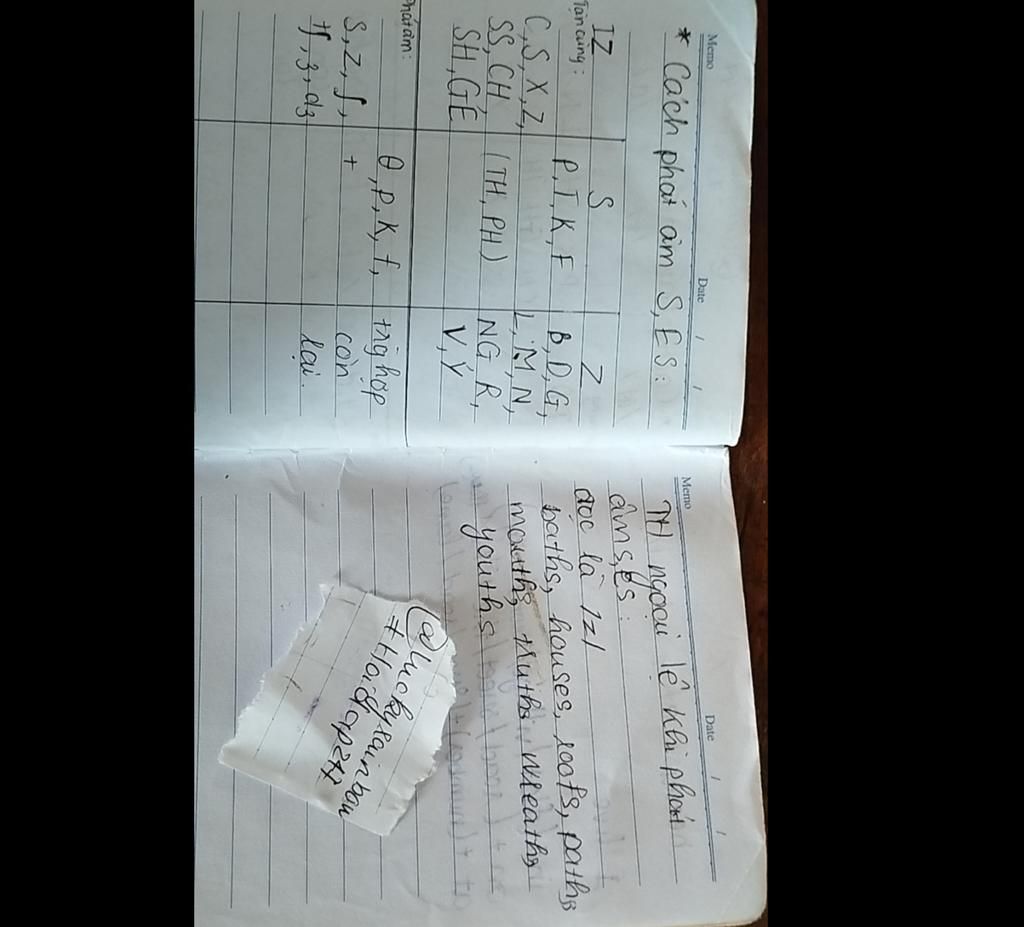 Memo
Date / /
* Cách phát âm S, ES:
IZ S Z
Tận cùng:
C, S, X, Z, P, T, K, F B, D, G,
SS, CH (TH, PH) L, M, N,
SH, GE NG R,
V, Y
Phát âm:
θ, p, k, f, trg hợp
s, z, ʃ, + còn
tʃ, ʒ, dʒ lại.
Memo
Date / /
TH ngoại lệ khi phát
âm s, es:
đọc là /z/
baths, houses, roofs, paths
mouths, truths, wreaths
youths
@luckyrainbow
#